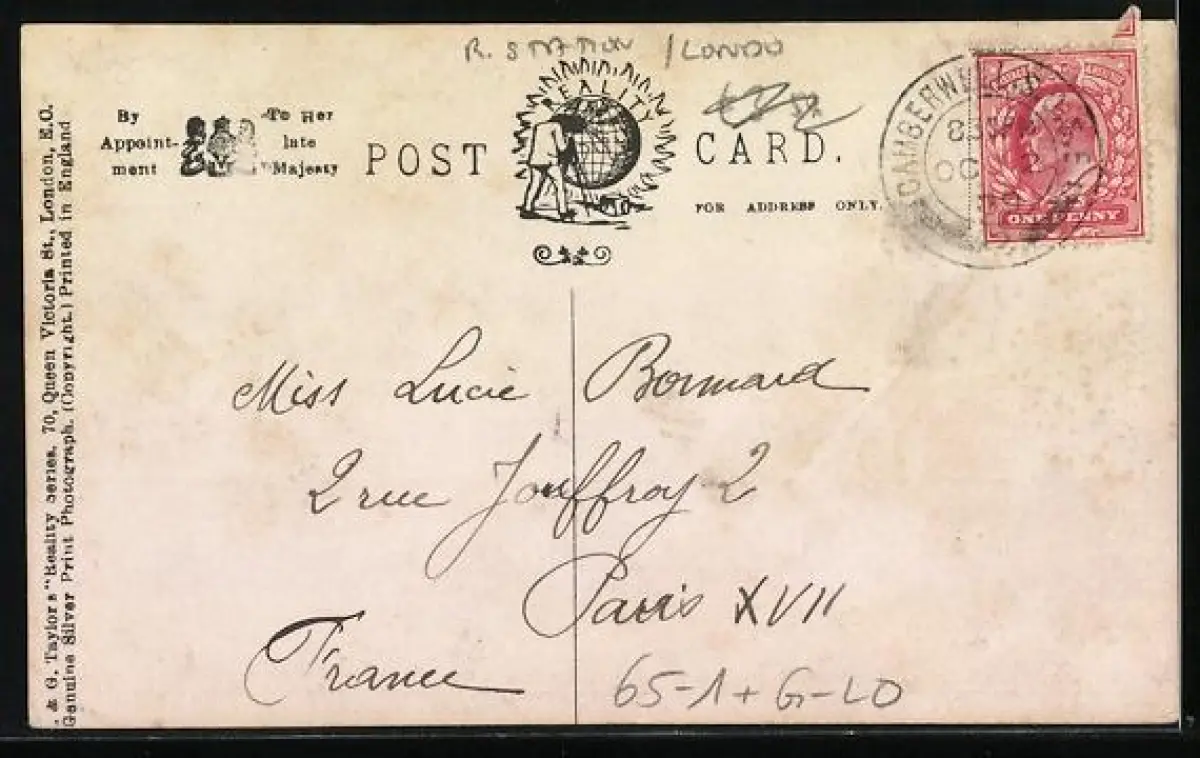 R. STATION / LONDO
REALITY
By
Appoint-
ment
To Her
late
Majesty
POST CARD.
FOR ADDRESS ONLY.
CAMBERWELL
8
OC 2
ONE PENNY
Miss Lucie Bonnard
2 rue Jouffroy 2
Paris XVII
France
65-1+G-LO
. & G. Taylor's "Reality Series, 70, Queen Victoria St., London, E.C.
Genuine Silver Print Photograph. (Copyright.) Printed in England